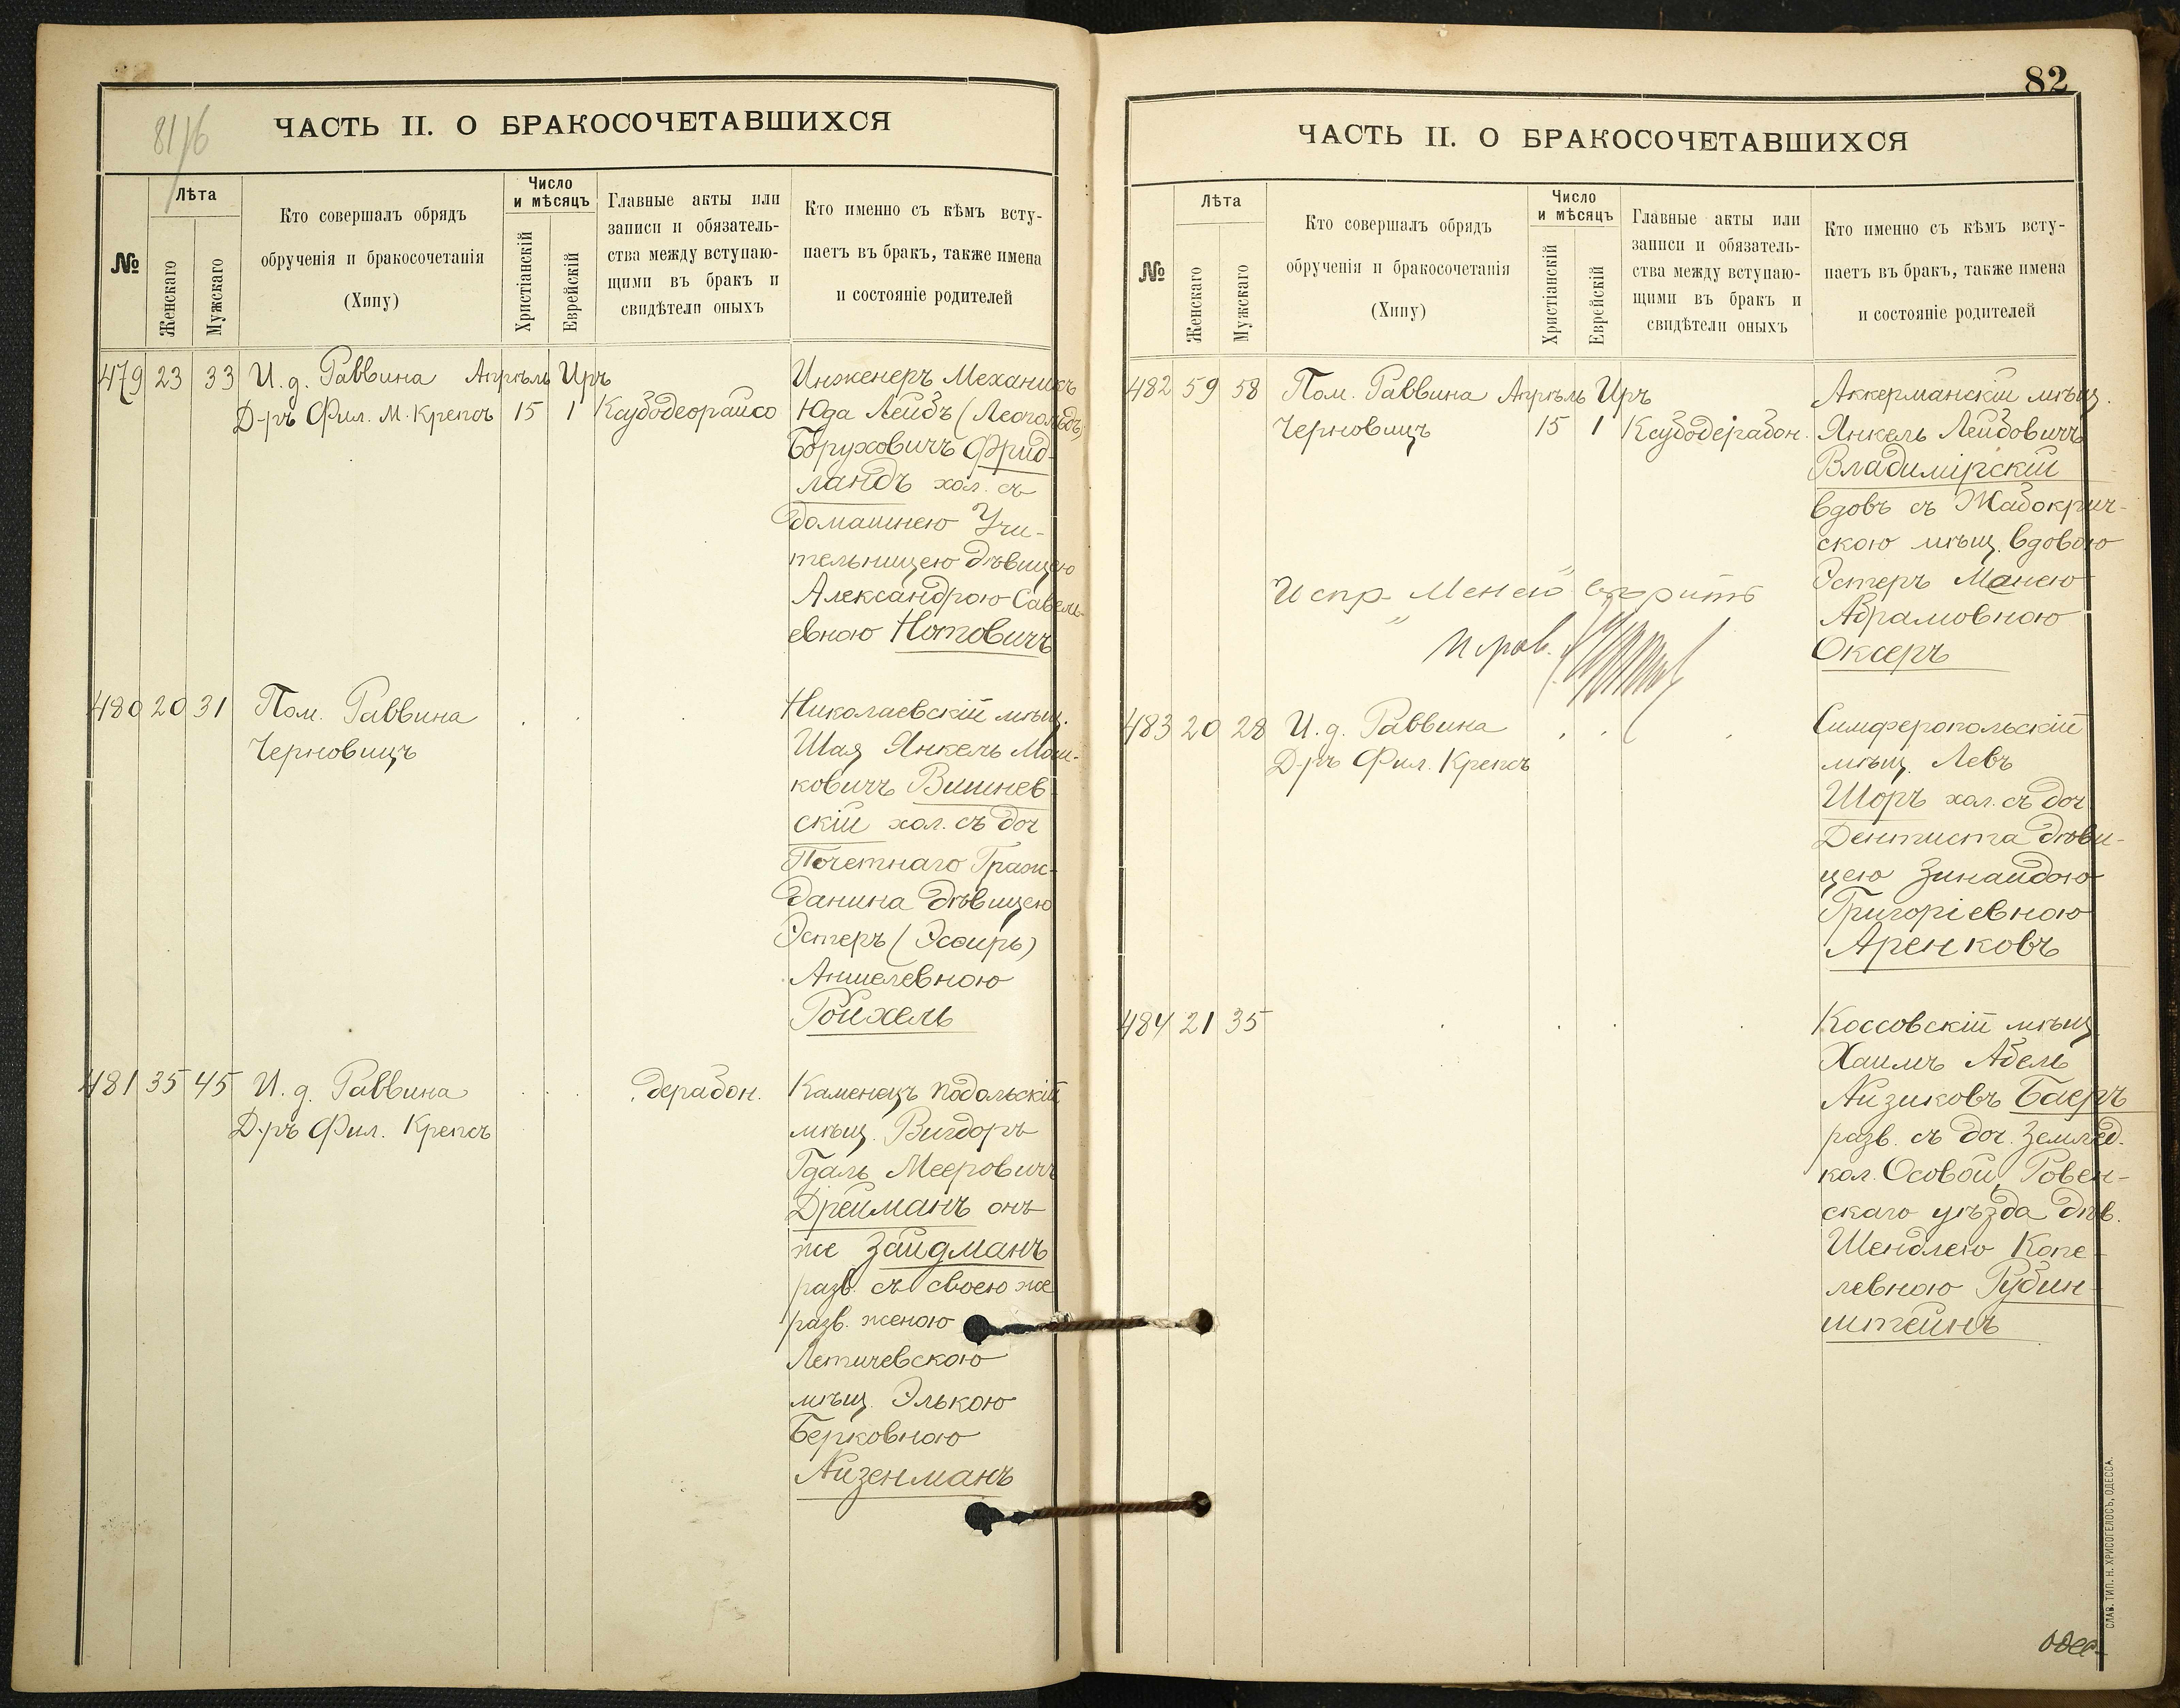 81/6
ЧАСТЬ II. О БРАКОСОЧЕТАВШИХСЯ
№
Лѣта
Женскаго
Мужскаго
Кто совершалъ обрядъ
обрученія и бракосочетанія
(Хипу)
Число
и мѣсяцъ
Христіанскій
Еврейскій
Главные акты или
записи и обязатель-
ства между вступаю-
щими въ бракъ и
свидѣтели оныхъ
Кто именно съ кѣмъ всту-
паетъ въ бракъ, также имена
и состояніе родителей
479 23 33 И. д. Раввина Апрѣль Иръ
Д-ръ Фил. М. Крепсъ 15 1 Каубодеорайсо
Инженеръ Механикъ
Юда Лейбъ (Леопольдъ)
Боруховичъ Фрид-
ландъ хол. съ
домашнею Учи-
тельницею дѣвицею
Александрою Савель-
евною Нотовичъ
480 20 31 Пом. Раввина
Черновицъ
Николаевскій мѣщ.
Шая Янкель Мош-
ковичъ Вишнев-
скій хол. съ доч
Почетнаго Граж-
данина дѣвицею
Эстеръ (Эсѳирь)
Аншелевною
Ройхель
481 35 45 И. д. Раввина
Д-ръ Фил. Крепсъ
дерабон.
Каменецъ Подольскій
мѣщ. Вигдоръ
Гдаль Мееровичъ
Дрейманъ онъ
же Зайдманъ
разв. съ своею же
разв. женою
Летичевскою
мѣщ. Элькою
Берковною
Айзенманъ
82
ЧАСТЬ II. О БРАКОСОЧЕТАВШИХСЯ
№
Лѣта
Женскаго
Мужскаго
Кто совершалъ обрядъ
обрученія и бракосочетанія
(Хипу)
Число
и мѣсяцъ
Христіанскій
Еврейскій
Главные акты или
записи и обязатель-
ства между вступаю-
щими въ бракъ и
свидѣтели оныхъ
Кто именно съ кѣмъ всту-
паетъ въ бракъ, также имена
и состояніе родителей
482 59 58 Пом. Раввина Апрѣль Иръ
Черновицъ 15 1 Каубодерабон.
Аккерманскій мѣщ.
Янкель Лейбовичъ
Владимірскій
вдовъ съ Жабокрич-
скою мѣщ. вдовою
Эстеръ Манею
Абрамовною
Оксеръ
Испр. „Менею"
483 20 28 И. д. Раввина
Д-ръ Фил. Крепсъ
Симферопольскій
мѣщ. Левъ
Шоръ хол. съ доч
Дентиста дѣви-
цею Зинаидою
Григоріевною
Аренковъ
484 21 35
Коссовскій мѣщ.
Хаимъ Абель
Айзиковъ Баеръ
разв. съ доч. землед.
кол. Осовой, Ровен-
скаго уѣзда дѣв.
Шендлею Копе-
левною Рубин-
штейнъ
СЛАВ. ТИП. Н. ХРИСОГЕЛОСЪ, ОДЕССА.